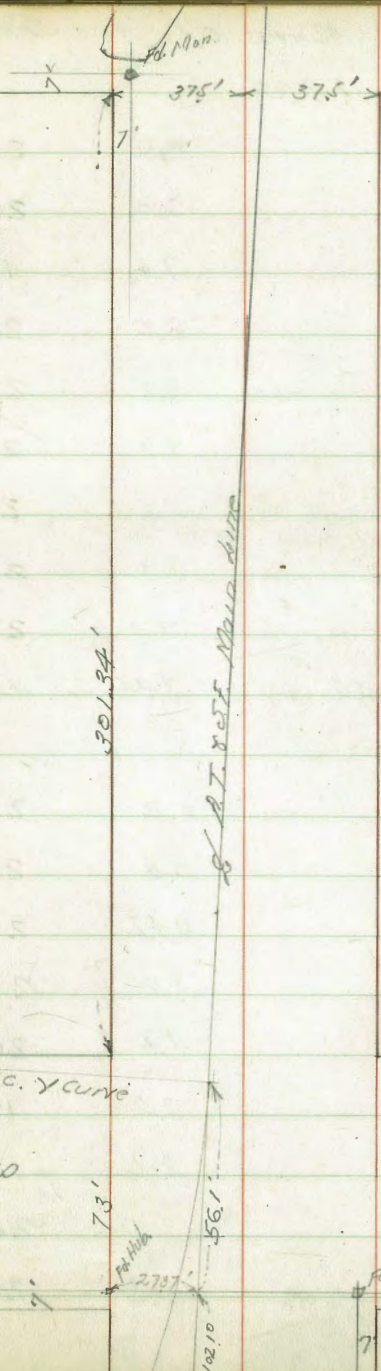 Fd. Mon.
7'
37.5' 37.5'
7'
301.34'
A.T. & S.F. Main Line
C. Y Curve
73'
56.1'
Fd. Hub
27.87'
7'
102.10
7'